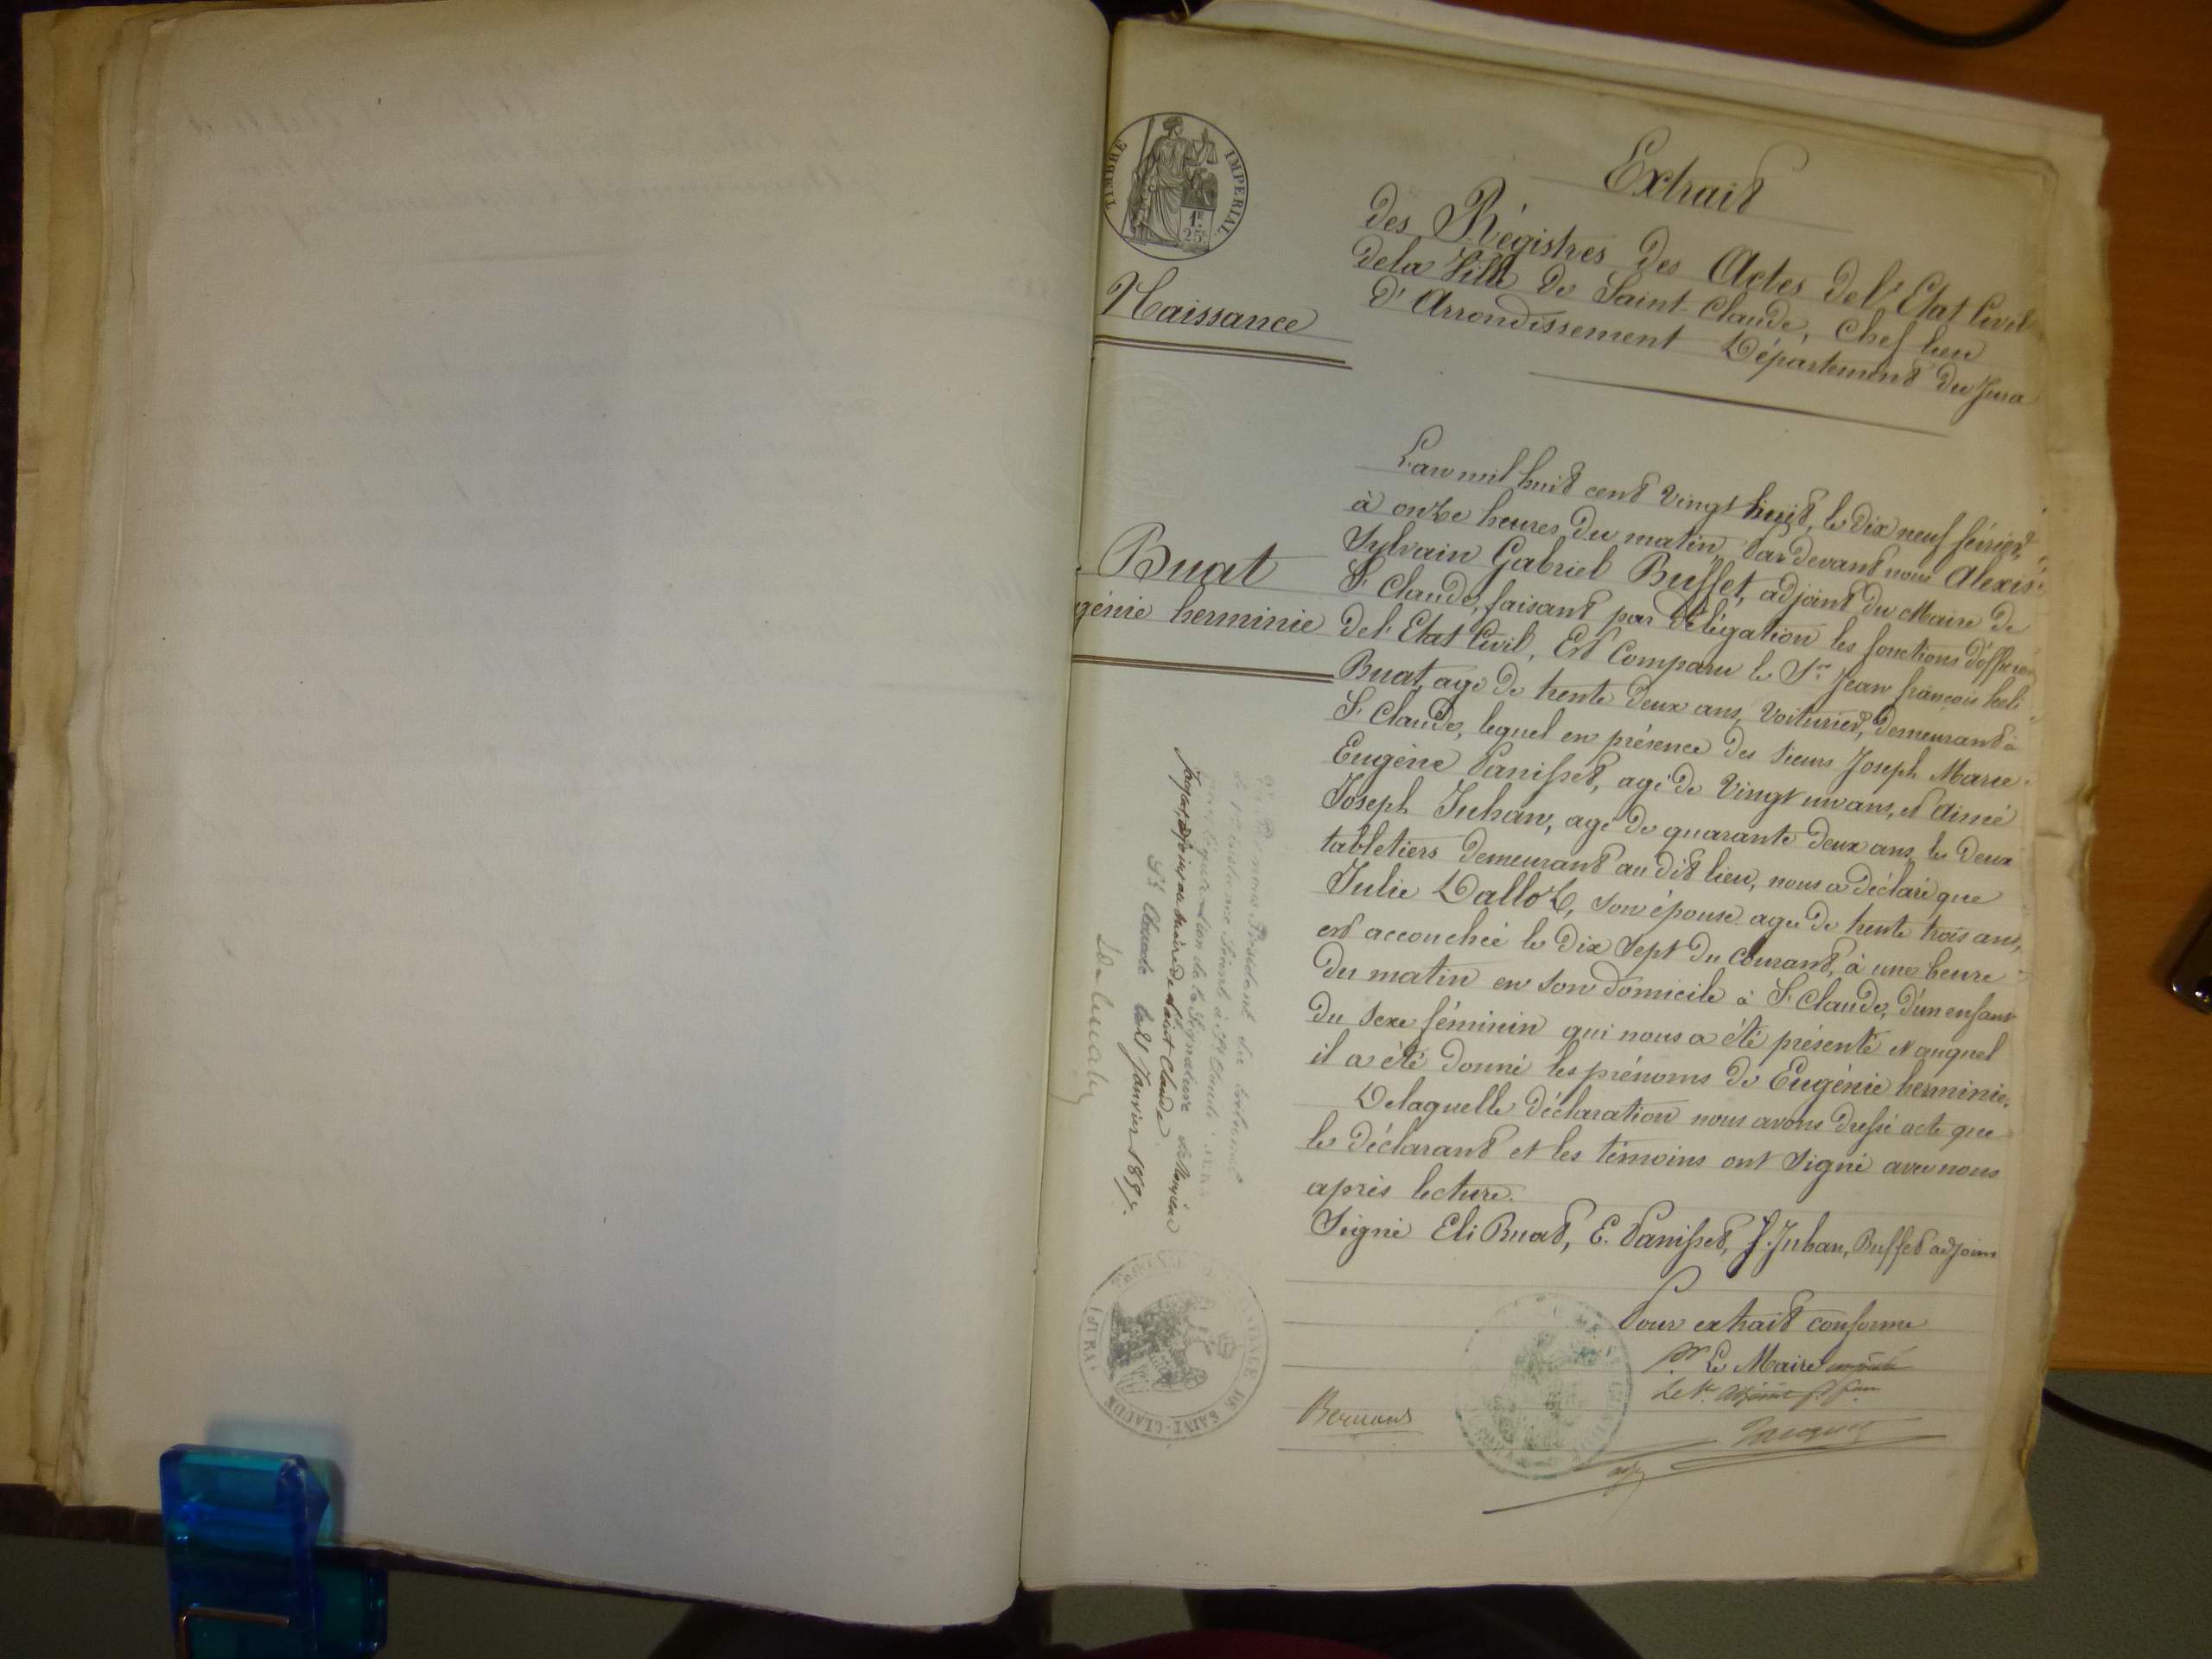 TIMBRE IMPERIAL
1F.
25c
Extrait
des Régistres des Actes de l'Etat Civil
de la Ville de Saint-Claude, Chef lieu
d'Arrondissement Département du Jura
Naissance
Buat
génie herminie
L'an mil huit cent vingt huit, le dix neuf février,
à onze heures du matin, Par devant nous Alexis
Sylvain Gabriel Buffet, adjoint du Maire de
St Claude, faisant par délégation les fonctions d'officier
de l'Etat Civil, Est Comparu le Sr Jean françois heli
Buat, agé de trente deux ans, Voiturier, demeurant à
St Claude, lequel en présence des Sieurs Joseph Marie
Eugène Panisset, agé de Vingt un ans, et Aimé
Joseph Juhan, agé de quarante deux ans, les deux
tabletiers demeurant au dit lieu, nous a déclaré que
Julie Dalloz, son épouse agée de trente trois ans,
est accouchée le dix Sept du Courant, à une heure
du matin en son domicile à St Claude, d'un enfant
du Sexe féminin qui nous a été présenté et auquel
il a été donné les prénoms de Eugénie herminie.
De laquelle déclaration nous avons dressé acte que
le déclarant et les témoins ont Signé avec nous
après lecture.
Signé Eli Buat, E. Panisset, J. Juhan, Buffet adjoint
Pour extrait conforme
pr Le Maire
Le 1er Adjoint
adj
Président du tribunal
de 1re instance Séant à St Claude
pour légalisation de la Signature de Monsieur
adjoint au maire de Saint Claude
St Claude le 21 Janvier
DE SAINT-CLAUDE
(JURA)